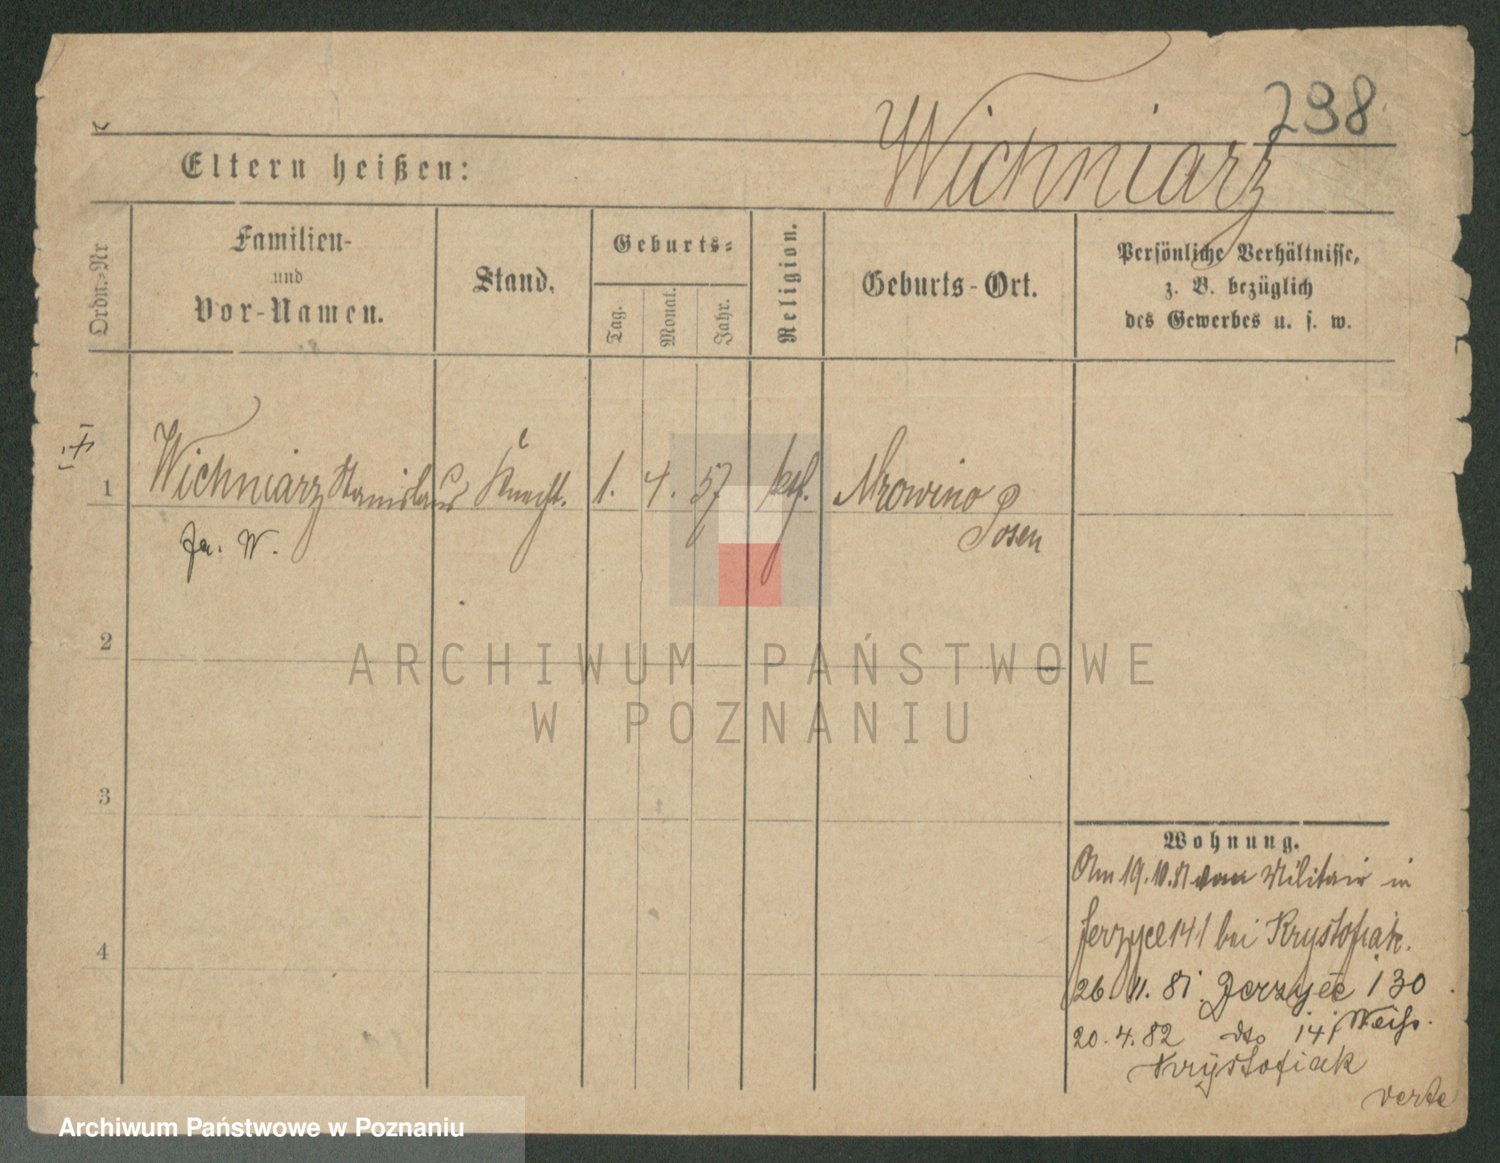 298
Wichniarz
Eltern heißen:
Ordn.-Nr
Familien-
und
Vor-Namen.
Stand.
Geburts-
Tag.
Monat.
Jahr.
Religion.
Geburts-Ort.
Persönliche Verhältnisse,
z. B. bezüglich
des Gewerbes u. s. w.
1 Wichniarz Stanislaus Knecht. 1. 4. 57 kath. Mrowino
Posen
W.
2
ARCHIWUM PAŃSTWOWE
W POZNANIU
3
4
Wohnung.
Am 19.10.81 vom Militair in
Jerzyce 141 bei Krystofiak.
26. 11. 81. Jerzyce 130
Weiß.
20. 4. 82 dto 141
Krystofiak
verte
Archiwum Państwowe w Poznaniu